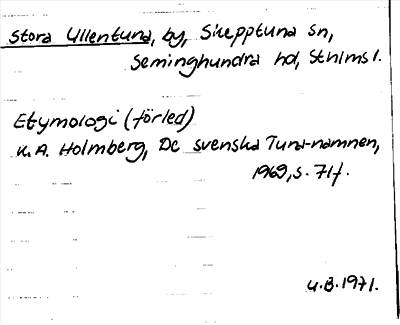 Stora Ullentuna, by, Skepptuna sn,
Seminghundra hd, Sthlms l.
Etymologi (förled)
K. A. Holmberg, De svenska Tuna-namnen,
1969, s. 71f.
U.B. 1971.